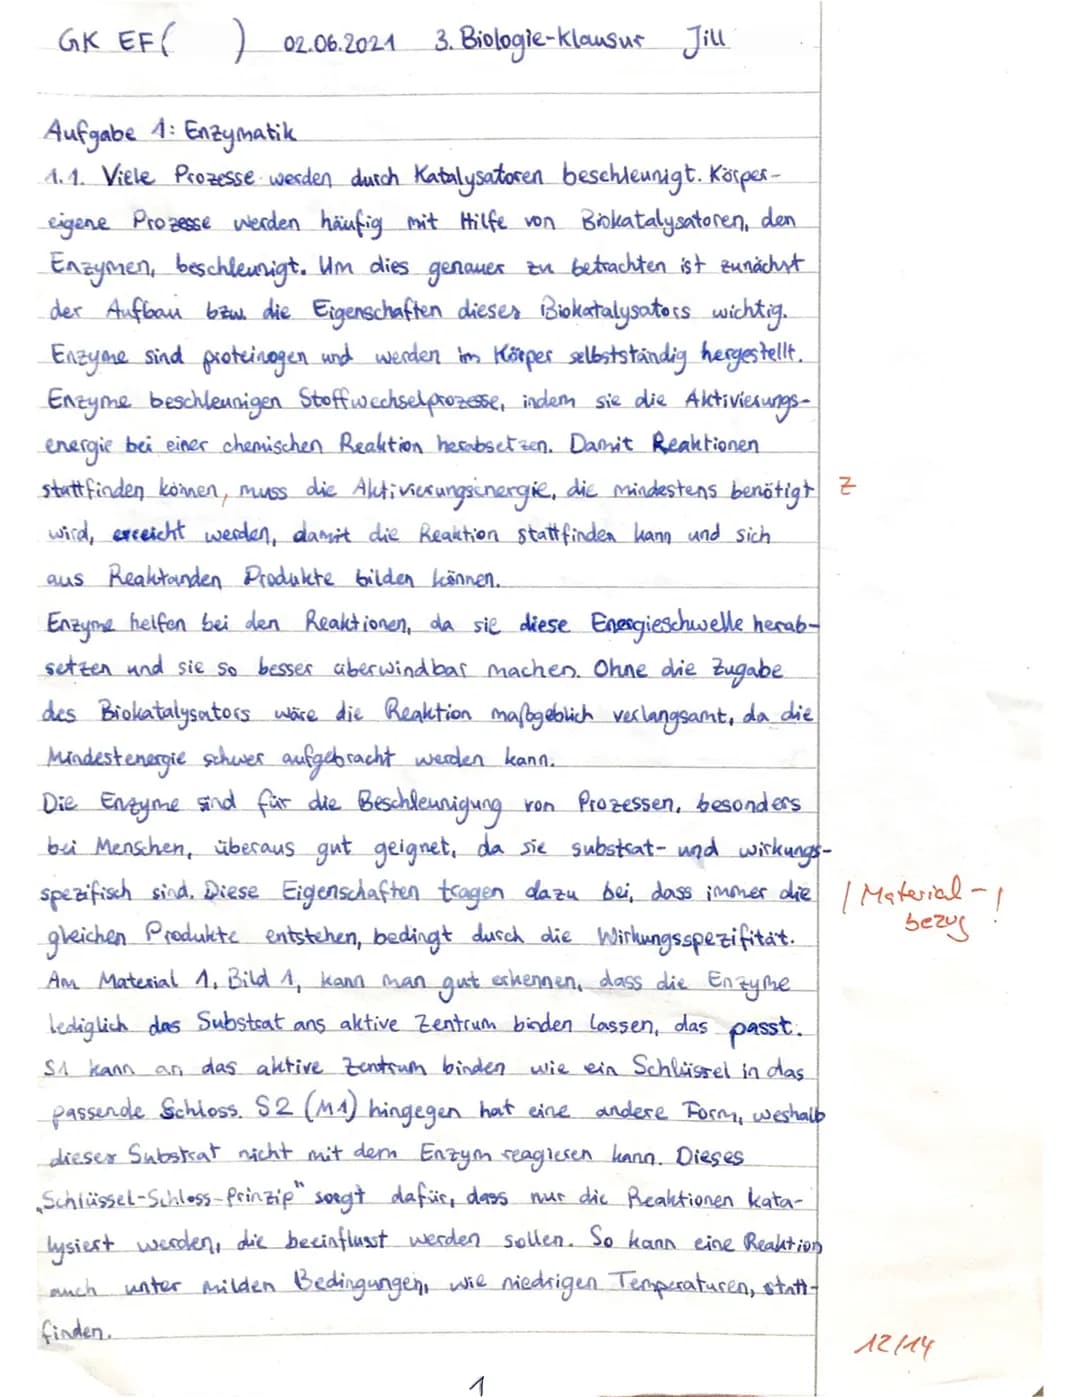 GK EF ( ) 02.06.2021 3. Biologie-Klausur Jill
Aufgabe 1: Enzymatik
1.1. Viele Prozesse werden durch Katalysatoren beschleunigt. Körper-
eigene Prozesse werden häufig mit Hilfe von Biokatalysatoren, den
Enzymen, beschleunigt. Um dies genauer zu betrachten ist zunächst
der Aufbau bzw. die Eigenschaften dieses Biokatalysators wichtig.
Enzyme sind proteinogen und werden im Körper selbstständig hergestellt.
Enzyme beschleunigen Stoffwechselprozesse, indem sie die Aktivierungs-
energie bei einer chemischen Reaktion herabsetzen. Damit Reaktionen
stattfinden können, muss die Aktivierungsenergie, die mindestens benötigt Z
wird, erreicht werden, damit die Reaktion stattfinden kann und sich
aus Reaktanden Produkte bilden können.
Enzyme helfen bei den Reaktionen, da sie diese Energieschwelle herab-
setzen und sie so besser überwindbar machen. Ohne die Zugabe
des Biokatalysators wäre die Reaktion maßgeblich verlangsamt, da die
Mindestenergie schwer aufgebracht werden kann.
Die Enzyme sind für die Beschleunigung von Prozessen, besonders
bei Menschen, überaus gut geignet, da sie substrat- und wirkungs-
spezifisch sind. Diese Eigenschaften tragen dazu bei, dass immer die | Material-
bezug !
gleichen Produkte entstehen, bedingt durch die Wirkungsspezifität.
Am Material 1, Bild 1, kann man gut erkennen, dass die Enzyme
lediglich das Substrat ans aktive Zentrum binden lassen, das passt.
S1 kann an das aktive Zentrum binden wie ein Schlüssel in das
passende Schloss. S2 (M1) hingegen hat eine andere Form, weshalb
dieses Substrat nicht mit dem Enzym reagieren kann. Dieses
„Schlüssel-Schloss-Prinzip" sorgt dafür, dass nur die Reaktionen kata-
lysiert werden, die beeinflusst werden sollen. So kann eine Reaktion
auch unter milden Bedingungen, wie niedrigen Temperaturen, statt-
finden.
12/14
1